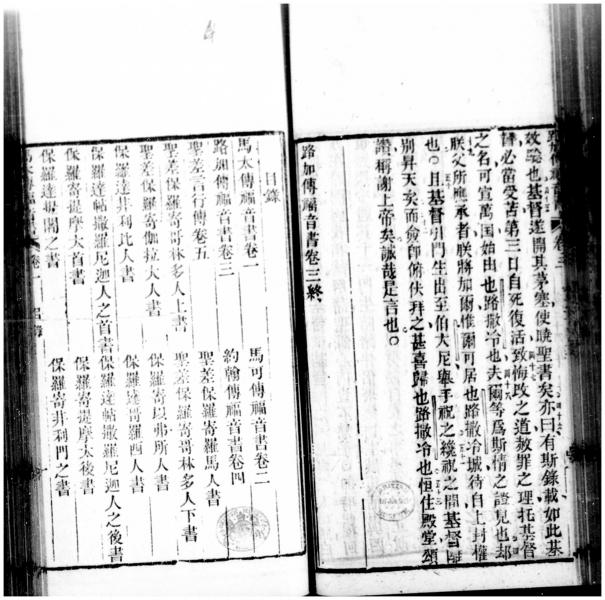 路加傳福音書 卷三
效驗也基督遂開其茅塞使曉聖書矣亦曰有斯錄載如此基
督必當受苦第三日自死復活致悔改之道赦罪之理托基督
之名可宣萬國始由也路撒冷也夫爾等爲斯情之證見也却
朕父所應承者朕將加爾惟爾可居也路撒冷城待自上封權
也。且基督引門生出至伯大尼舉手祝之纔祝之間基督離
別昇天矣而僉師俯伏拜之甚喜歸也路撒冷也恒住殿堂頌
讚稱謝上帝矣誠哉是言也。
路加傳福音書卷三終
目錄
馬太傳福音書卷一 馬可傳福音書卷二
路加傳福音書卷三 約翰傳福音書卷四
聖差言行傳卷五 聖差保羅寄羅馬人書
聖差保羅寄哥林多人上書 聖差保羅寄哥林多人下書
聖差保羅寄伽拉大人書 保羅寄以弗所人書
保羅達非利比人書 保羅達哥羅西人書
保羅達帖撒羅尼迦人之首書 保羅達帖撒羅尼迦人之後書
保羅寄提摩太首書 保羅寄提摩太後書
保羅達提都之書 保羅寄非利門之書